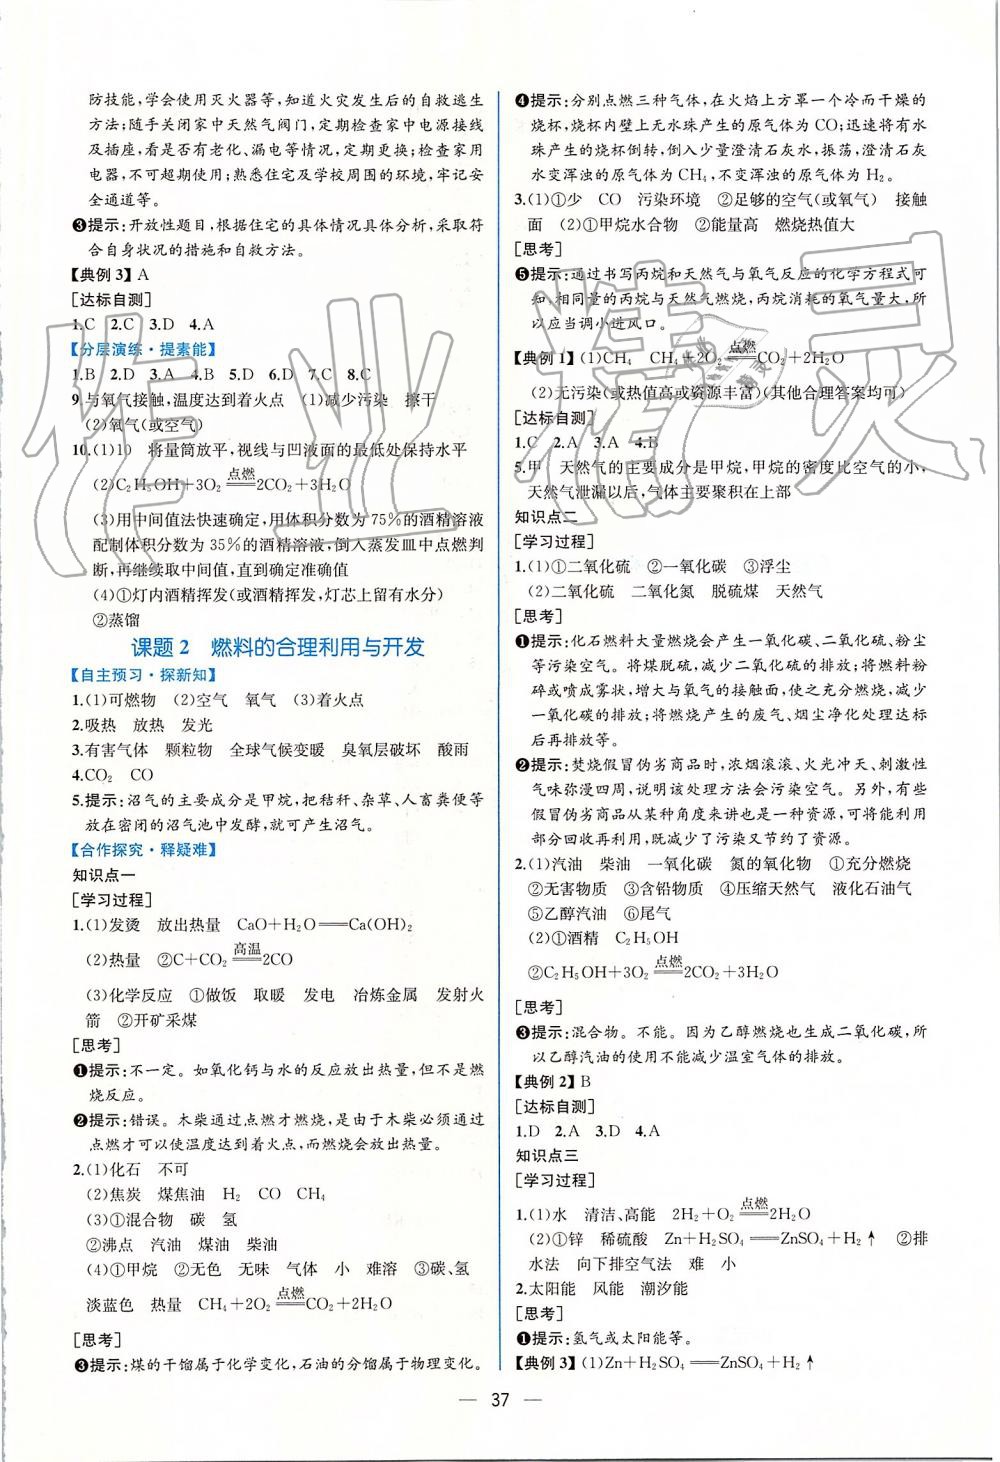 防技能,学会使用灭火器等,知道火灾发生后的自救逃生
方法;随手关闭家中天然气阀门,定期检查家中电源接线
及插座,看是否有老化、漏电等情况,定期更换;检查家用
电器,不可超期使用;熟悉住宅及学校周围的环境,牢记安
全通道等。
❸提示:开放性题目,根据住宅的具体情况具体分析,采取符
合自身状况的措施和自救方法。
【典例3】A
[达标自测]
1.C 2.C 3.D 4.A
【分层演练·提素能】
1.B 2.D 3.A 4.B 5.D 6.D 7.C 8.C
9.与氧气接触,温度达到着火点 (1)减少污染 擦干
(2)氧气(或空气)
10.(1)10 将量筒放平,视线与凹液面的最低处保持水平
(2)C₂H₅OH+3O₂ 点燃══ 2CO₂+3H₂O
(3)用中间值法快速确定,用体积分数为75%的酒精溶液
配制体积分数为35%的酒精溶液,倒入蒸发皿中点燃判
断,再继续取中间值,直到确定准确值
(4)①灯内酒精挥发(或酒精挥发,灯芯上留有水分)
②蒸馏
课题2 燃料的合理利用与开发
【自主预习·探新知】
1.(1)可燃物 (2)空气 氧气 (3)着火点
2.吸热 放热 发光
3.有害气体 颗粒物 全球气候变暖 臭氧层破坏 酸雨
4.CO₂ CO
5.提示:沼气的主要成分是甲烷,把秸秆、杂草、人畜粪便等
放在密闭的沼气池中发酵,就可产生沼气。
【合作探究·释疑难】
知识点一
[学习过程]
1.(1)发烫 放出热量 CaO+H₂O══Ca(OH)₂
(2)热量 ②C+CO₂ 高温══ 2CO
(3)化学反应 ①做饭 取暖 发电 冶炼金属 发射火
箭 ②开矿采煤
[思考]
❶提示:不一定。如氧化钙与水的反应放出热量,但不是燃
烧反应。
❷提示:错误。木柴通过点燃才燃烧,是由于木柴必须通过
点燃才可以使温度达到着火点,而燃烧会放出热量。
2.(1)化石 不可
(2)焦炭 煤焦油 H₂ CO CH₄
(3)①混合物 碳 氢
②沸点 汽油 煤油 柴油
(4)①甲烷 ②无色 无味 气体 小 难溶 ③碳、氢
淡蓝色 热量 CH₄+2O₂ 点燃══ CO₂+2H₂O
[思考]
❸提示:煤的干馏属于化学变化,石油的分馏属于物理变化。
❹提示:分别点燃三种气体,在火焰上方罩一个冷而干燥的
烧杯,烧杯内壁上无水珠产生的原气体为CO;迅速将有水
珠产生的烧杯倒转,倒入少量澄清石灰水,振荡,澄清石灰
水变浑浊的原气体为CH₄,不变浑浊的原气体为H₂。
3.(1)①少 CO 污染环境 ②足够的空气(或氧气) 接触
面 (2)①甲烷水合物 ②能量高 燃烧热值大
[思考]
❺提示:通过书写丙烷和天然气与氧气反应的化学方程式可
知,相同量的丙烷与天然气燃烧,丙烷消耗的氧气量大,所
以应当调小进风口。
【典例1】(1)CH₄ CH₄+2O₂ 点燃══ CO₂+2H₂O
(2)无污染(或热值高或资源丰富)(其他合理答案均可)
[达标自测]
1.C 2.A 3.A 4.B
5.甲 天然气的主要成分是甲烷,甲烷的密度比空气的小,
天然气泄漏以后,气体主要聚积在上部
知识点二
[学习过程]
1.(1)①二氧化硫 ②一氧化碳 ③浮尘
(2)二氧化硫 二氧化氮 脱硫煤 天然气
[思考]
❶提示:化石燃料大量燃烧会产生一氧化碳、二氧化硫、粉尘
等污染空气。将煤脱硫,减少二氧化硫的排放;将燃料粉
碎或喷成雾状,增大与氧气的接触面,使之充分燃烧,减少
一氧化碳的排放;将燃烧产生的废气、烟尘净化处理达标
后再排放等。
❷提示:焚烧假冒伪劣商品时,浓烟滚滚、火光冲天、刺激性
气味弥漫四周,说明该处理方法会污染空气。另外,有些
假冒伪劣商品从某种角度来讲也是一种资源,可将能利用
部分回收再利用,既减少了污染又节约了资源。
2.(1)汽油 柴油 一氧化碳 氮的氧化物 ①充分燃烧
②无害物质 ③含铅物质 ④压缩天然气 液化石油气
⑤乙醇汽油 ⑥尾气
(2)①酒精 C₂H₅OH
②C₂H₅OH+3O₂ 点燃══ 2CO₂+3H₂O
[思考]
❸提示:混合物。不能。因为乙醇燃烧也生成二氧化碳,所
以乙醇汽油的使用不能减少温室气体的排放。
【典例2】B
[达标自测]
1.D 2.A 3.D 4.A
知识点三
[学习过程]
1.(1)水 清洁、高能 2H₂+O₂ 点燃══ 2H₂O
(2)①锌 稀硫酸 Zn+H₂SO₄══ZnSO₄+H₂↑ ②排
水法 向下排空气法 难 小
2.太阳能 风能 潮汐能
[思考]
❶提示:氢气或太阳能等。
【典例3】(1)Zn+H₂SO₄══ZnSO₄+H₂↑
— 37 —
作业精灵